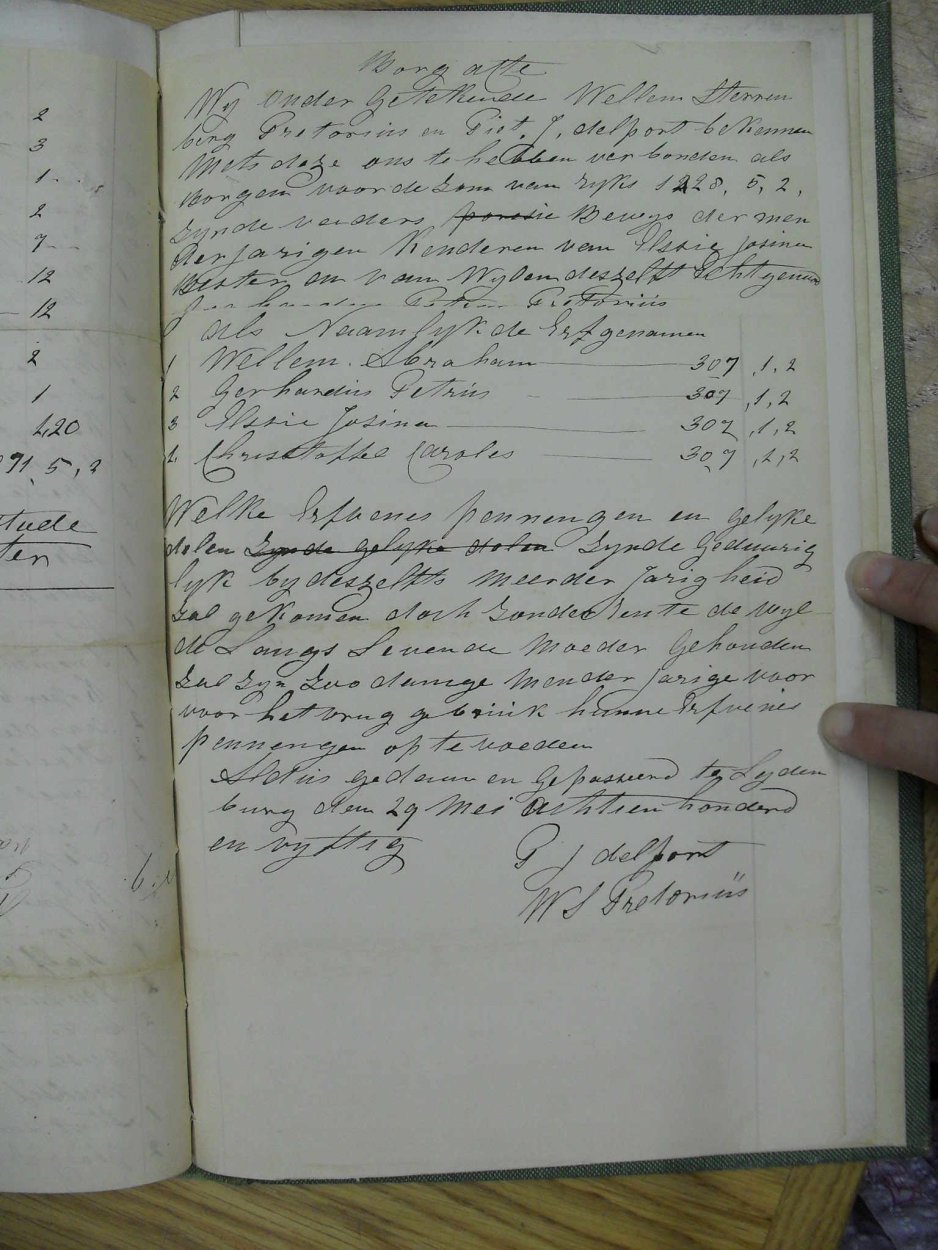 2
3
1
2
7
12
12
2
1
420
91, 5, 2
Borg atte
Wy onder getekende Wellem Sterren
berg Pretorius en Piet. J. delport bekennen
Mets deze ons te hebben verbonden als
borgen voor de zom van ryks 1228, 5, 2,
zynde vaders Bewys der men
derjarigen kenderen van Elssie Josina
en van Wylen deszelfs Echtgenoot
Pretorius
als Naamlyk de Erfgenamen
1 Wellem. Abraham 307 ,1,2
2 Gerhardus Petrus 307 ,1,2
3 Elssie Josina 307 ,1,2
4 Christoffel Caroles 307 ,1,2
Welke Erfvenes pennengen en gelyke
delen zynde gelyke delen zynde Geduurig
lyk by deszelfs meerder Jarigheid
zal gekomen doch zonder rente de wyl
de Langs Levende Moeder Gehouden
zal zyn zoo danige mender Jarige voor
voor het vrug gebruik hunne Erfvenes
pennengen op te voeden
Aldus gedaan en Gepasseerd te Leyden
burg den 29 Mei Achtien honderd
en vyftig
P J delport
W S Pretorius